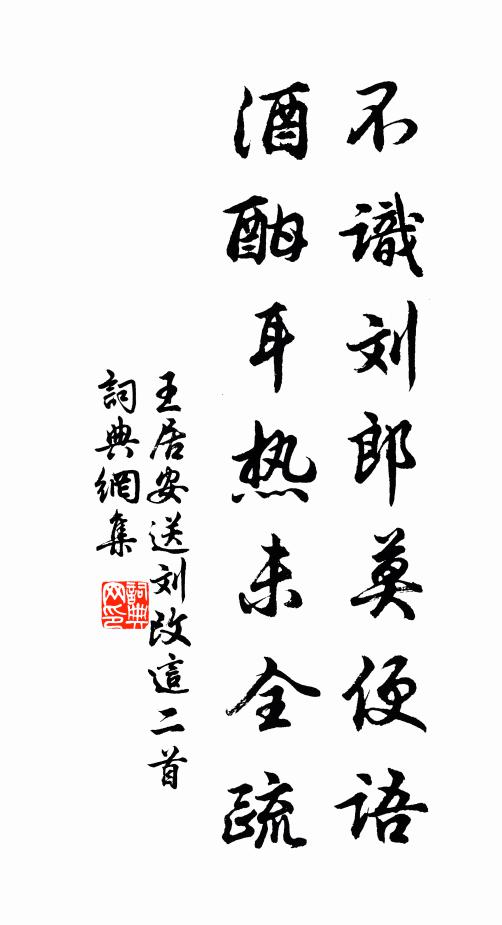 不識刘郎莫便語
酒酣耳热未全疏
王居安送刘改這二首
詞典網集
詞典
网印